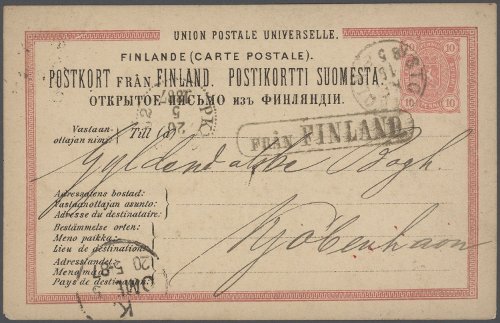 UNION POSTALE UNIVERSELLE.
FINLANDE (CARTE POSTALE).
POSTKORT FRÅN FINLAND. POSTIKORTTI SUOMESTA.
ОТКРЫТОЕ ПИСЬМО изъ ФИНЛЯНДІИ.
10 10
10 10
Vastaan-
ottajan nimi:
Till (à)
FRÅN FINLAND
Gyldendalske Bogh.
Adressatens bostad:
Vastaanottajan asunto:
Adresse du destinataire:
Bestämmelse orten:
Meno paikka:
Lieu de destination:
Kjöbenhavn
Adresslandet:
Menomaa:
Pays de destination: